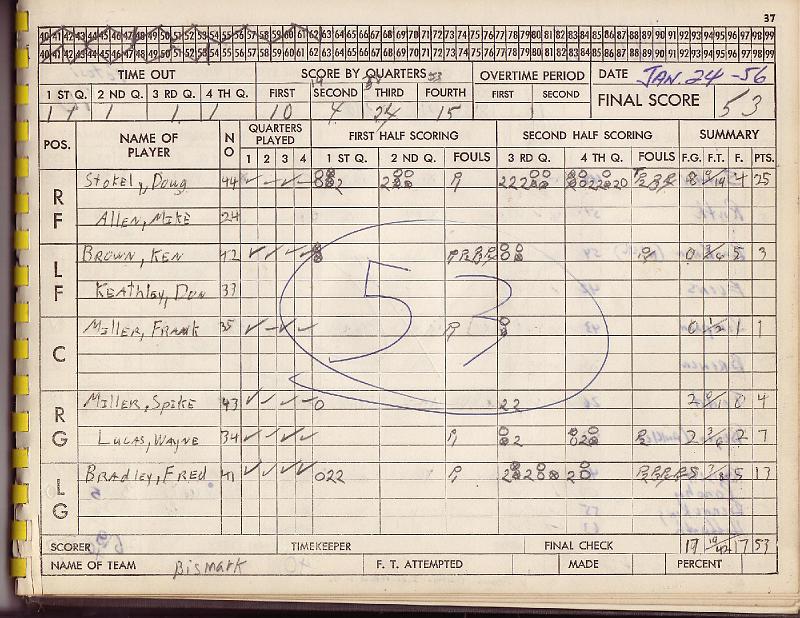 37
40 41 42 43 44 45 46 47 48 49 50 51 52 53 54 55 56 57 58 59 60 61 62 63 64 65 66 67 68 69 70 71 72 73 74 75 76 77 78 79 80 81 82 83 84 85 86 87 88 89 90 91 92 93 94 95 96 97 98 99
40 41 42 43 44 45 46 47 48 49 50 51 52 53 54 55 56 57 58 59 60 61 62 63 64 65 66 67 68 69 70 71 72 73 74 75 76 77 78 79 80 81 82 83 84 85 86 87 88 89 90 91 92 93 94 95 96 97 98 99
TIME OUT SCORE BY QUARTERS OVERTIME PERIOD DATE JAN. 24 -56
1 ST Q. 2 ND Q. 3 RD Q. 4 TH Q. FIRST SECOND THIRD FOURTH FIRST SECOND FINAL SCORE 53
10 4 24 15
POS. NAME OF PLAYER NO QUARTERS PLAYED FIRST HALF SCORING SECOND HALF SCORING SUMMARY
1 2 3 4 1 ST Q. 2 ND Q. FOULS 3 RD Q. 4 TH Q. FOULS F.G. F.T. F. PTS.
RF Stokel, Doug 44 8 9/14 4 25
ALLEN, MIKE 24
LF BROWN, KEN 42 0 5 3
KEATHLEY, DON 33
53
C MILLER, FRANK 35 0 1/2 1 1
RG MILLER, SPIKE 43 0 22 2 0/1 0 4
LUCAS, WAYNE 34 2 3/6 2 7
LG BRADLEY, FRED 41 022 5 5 13
SCORER TIMEKEEPER FINAL CHECK 17 19/42 17 53
NAME OF TEAM Bismark F. T. ATTEMPTED MADE PERCENT